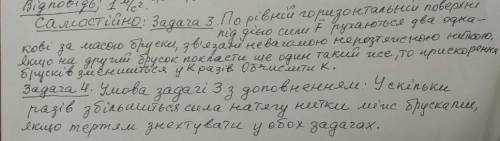 Відповідь: 1 м/с².
Самостійно: Задача 3. По рівній горизонтальній поверхні
під дією сили F⃗ рухаються два одна-
кові за масою бруски, зв'язані невагомою нерозтяжною ниткою,
якщо на другий брусок покласти ще один такий же, то прискорення
брусків зменшиться у К разів. Обчислити К.
Задача 4. Умова задачі 3 з доповненням: У скільки
разів збільшиться сила натягу нитки між брусками,
якщо тертям знехтувати у обох задачах.